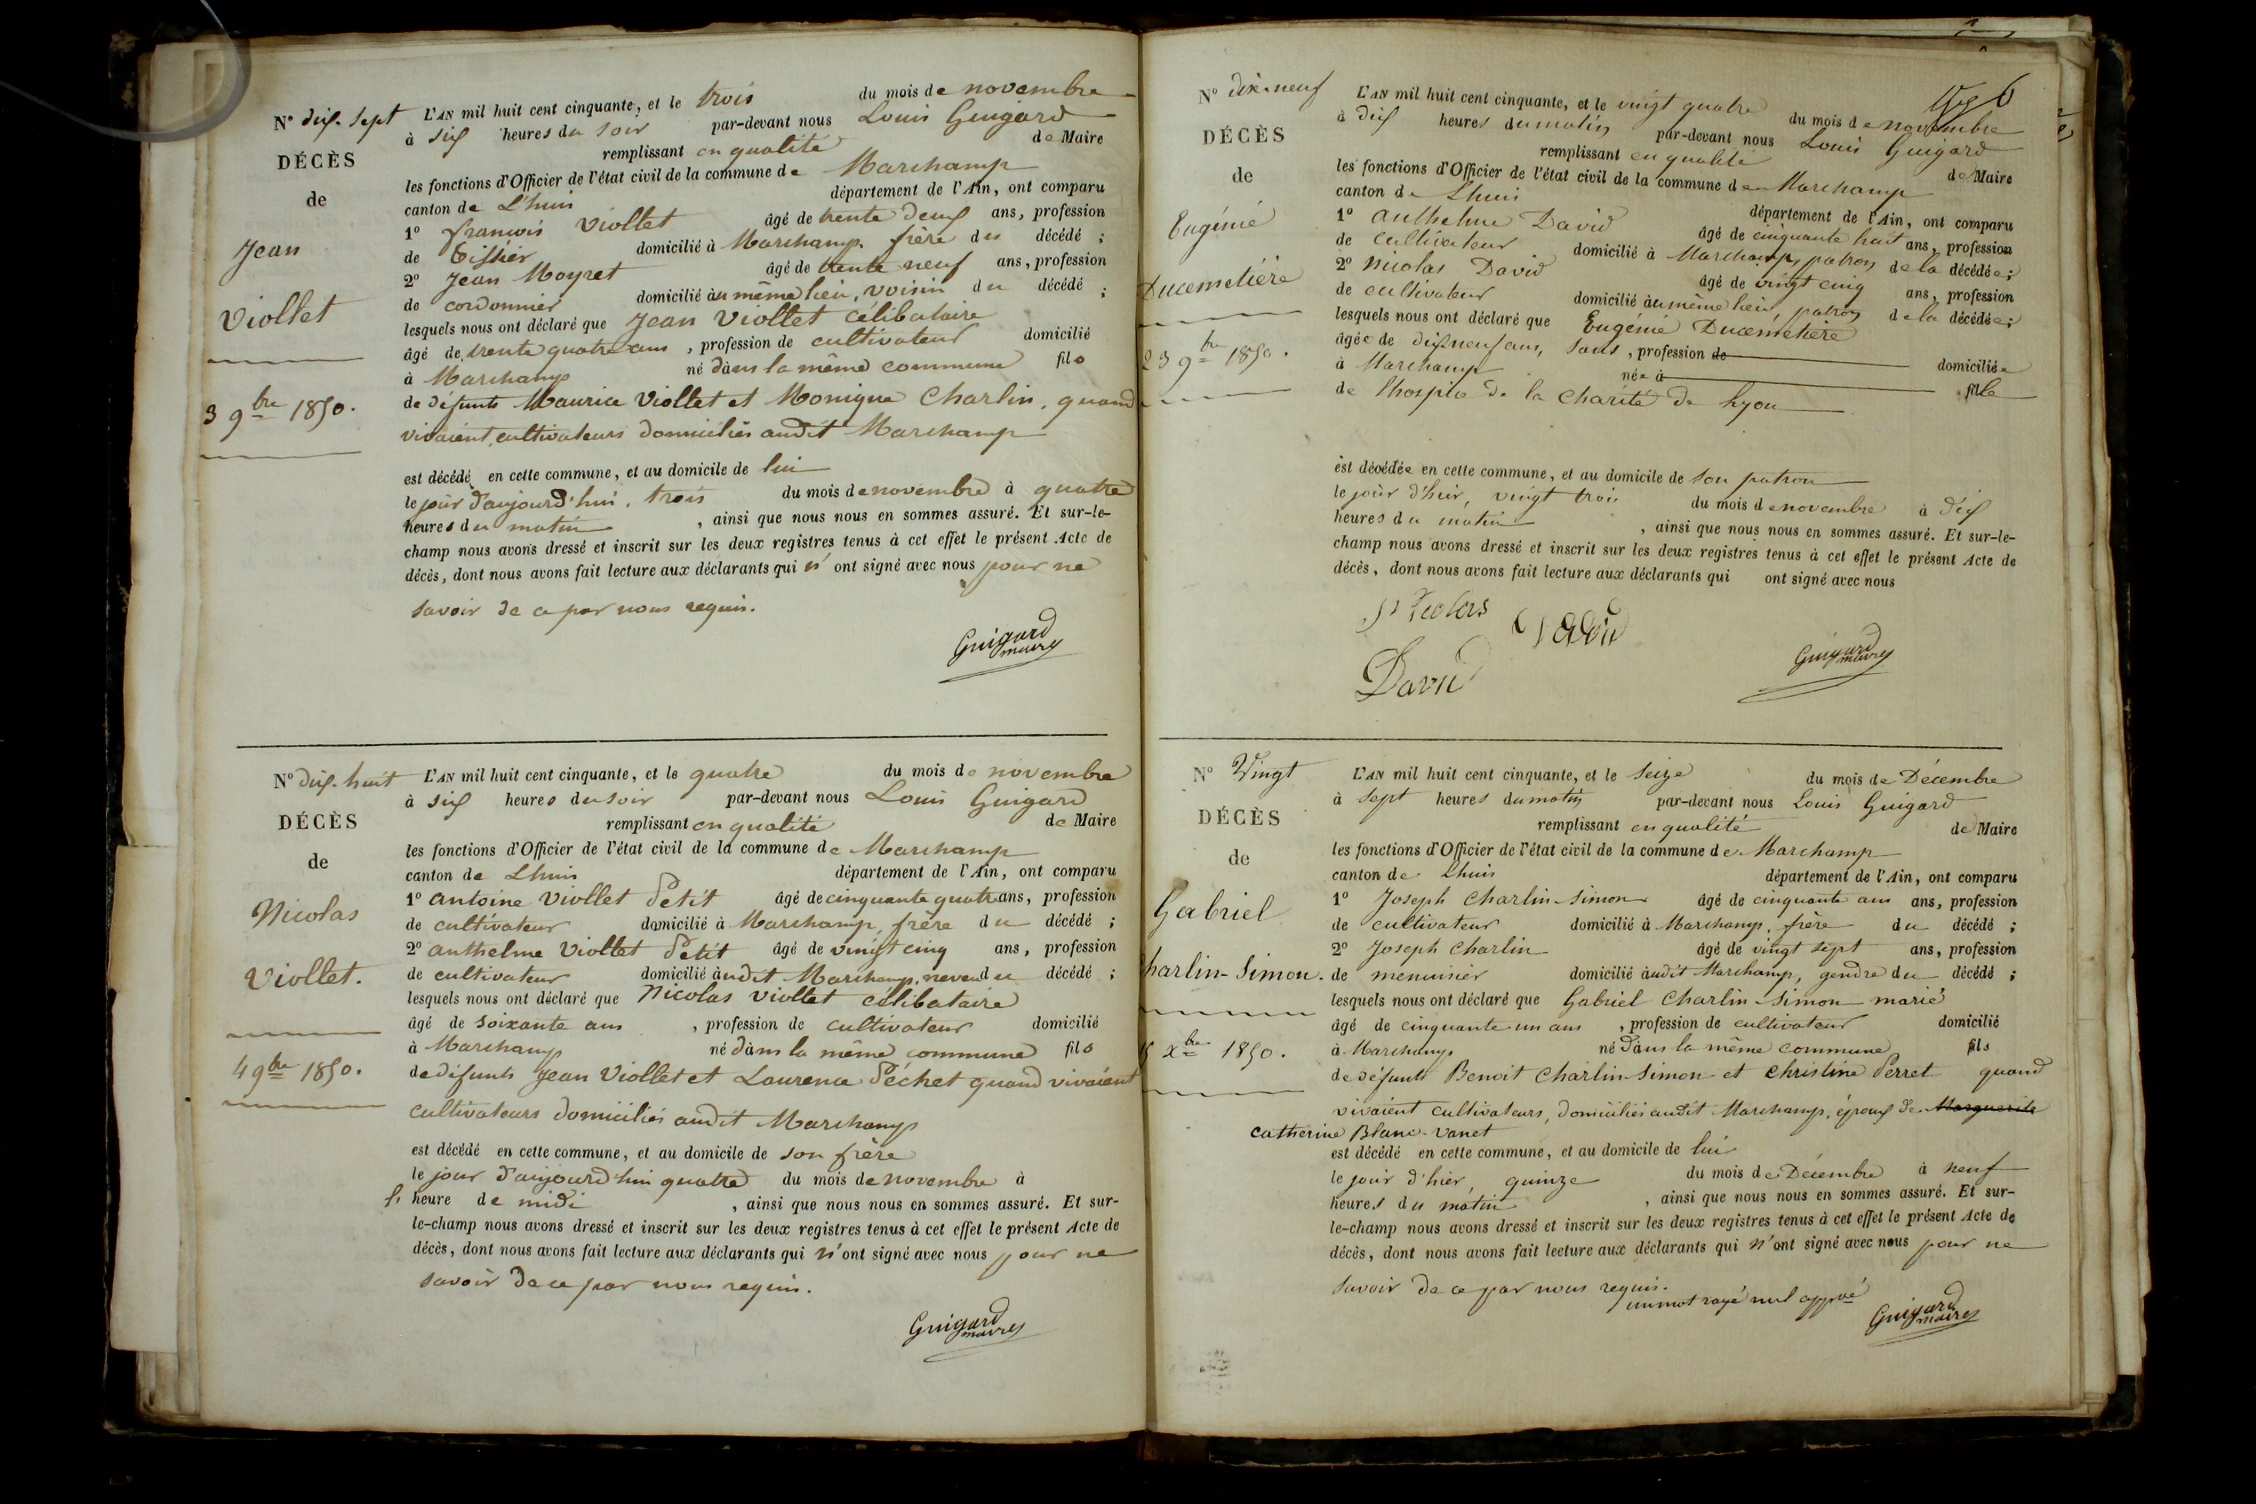 N° dix-sept
DÉCÈS
de
Jean
Viollet
3 9bre 1850.
L'AN mil huit cent cinquante, et le trois du mois de novembre
à six heures du soir par-devant nous Louis Guigard
remplissant en qualité de Maire
les fonctions d'Officier de l'état civil de la commune de Marchamp
canton de L'huis département de l'Ain, ont comparu
1° françois Viollet âgé de trente deux ans, profession
de Tissier domicilié à Marchamp, frère du décédé ;
2° Jean Moyret âgé de trente neuf ans, profession
de cordonnier domicilié au même lieu, voisin du décédé ;
lesquels nous ont déclaré que Jean Viollet célibataire
âgé de trente quatre ans, profession de cultivateur domicilié
à Marchamp né dans la même commune fils
de défunts Maurice Viollet et Monique Charlin, quand
vivaient cultivateurs domiciliés audit Marchamp
est décédé en cette commune, et au domicile de lui
le jour d'aujourd'hui, trois du mois de novembre à quatre
heures du matin, ainsi que nous nous en sommes assuré. Et sur-le-
champ nous avons dressé et inscrit sur les deux registres tenus à cet effet le présent Acte de
décès, dont nous avons fait lecture aux déclarants qui n'ont signé avec nous pour ne
savoir de ce par nous requis.
Guigard
maire
N° dix-huit
DÉCÈS
de
Nicolas
Viollet.
4 9bre 1850.
L'AN mil huit cent cinquante, et le quatre du mois de novembre
à six heures du soir par-devant nous Louis Guigard
remplissant en qualité de Maire
les fonctions d'Officier de l'état civil de la commune de Marchamp
canton de Lhuis département de l'Ain, ont comparu
1° antoine Viollet Petit âgé de cinquante quatre ans, profession
de cultivateur domicilié à Marchamp, frère du décédé ;
2° anthelme Viollet Petit âgé de vingt cinq ans, profession
de cultivateur domicilié audit Marchamp, neveu du décédé ;
lesquels nous ont déclaré que Nicolas Viollet célibataire
âgé de soixante ans, profession de cultivateur domicilié
à Marchamp né dans la même commune fils
de défunts Jean Viollet et Laurence Péchet quand vivaient
cultivateurs domiciliés audit Marchamp
est décédé en cette commune, et au domicile de son frère
le jour d'aujourd'hui quatre du mois de novembre à
l'heure de midi, ainsi que nous nous en sommes assuré. Et sur-
le-champ nous avons dressé et inscrit sur les deux registres tenus à cet effet le présent Acte de
décès, dont nous avons fait lecture aux déclarants qui n'ont signé avec nous pour ne
savoir de ce par nous requis.
Guigard
maire
6
N° dix-neuf
DÉCÈS
de
Eugénie
Ducemetière
23 9bre 1850.
L'AN mil huit cent cinquante, et le vingt quatre du mois de novembre
à dix heures du matin par-devant nous Louis Guigard
remplissant en qualité de Maire
les fonctions d'Officier de l'état civil de la commune de Marchamp
canton de Lhuis département de l'Ain, ont comparu
1° anthelme David âgé de cinquante huit ans, profession
de cultivateur domicilié à Marchamp, patron de la décédée ;
2° Nicolas David âgé de vingt cinq ans, profession
de cultivateur domicilié au même lieu, patron de la décédée ;
lesquels nous ont déclaré que Eugénie Ducemetière
âgée de dix neuf ans, sans, profession de domiciliée
à Marchamp née à fille
de l'hospice de la Charité de Lyon
est décédée en cette commune, et au domicile de son patron
le jour d'hier, vingt trois du mois de novembre à dix
heures du matin, ainsi que nous nous en sommes assuré. Et sur-le-
champ nous avons dressé et inscrit sur les deux registres tenus à cet effet le présent Acte de
décès, dont nous avons fait lecture aux déclarants qui ont signé avec nous
David
David
Guigard
maire
N° Vingt
DÉCÈS
de
Gabriel
harlin-Simon.
xbre 1850.
L'AN mil huit cent cinquante, et le seize du mois de Décembre
à sept heures du matin par-devant nous Louis Guigard
remplissant en qualité de Maire
les fonctions d'Officier de l'état civil de la commune de Marchamp
canton de Lhuis département de l'Ain, ont comparu
1° Joseph Charlin-Simon âgé de cinquante ans ans, profession
de cultivateur domicilié à Marchamp, frère du décédé ;
2° Joseph Charlin âgé de vingt sept ans, profession
de menuisier domicilié audit Marchamp, gendre du décédé ;
lesquels nous ont déclaré que Gabriel Charlin-Simon marié
âgé de cinquante un ans, profession de cultivateur domicilié
à Marchamp né dans la même commune fils
de défunts Benoit Charlin-Simon et Christine Perret quand
vivaient cultivateurs, domiciliés audit Marchamp, époux de Marguerite
Catherine Blanc-Vanet
est décédé en cette commune, et au domicile de lui
le jour d'hier, quinze du mois de Décembre à neuf
heures du matin, ainsi que nous nous en sommes assuré. Et sur-
le-champ nous avons dressé et inscrit sur les deux registres tenus à cet effet le présent Acte de
décès, dont nous avons fait lecture aux déclarants qui n'ont signé avec nous pour ne
savoir de ce par nous requis.
un mot rayé nul apprové
Guigard
maire